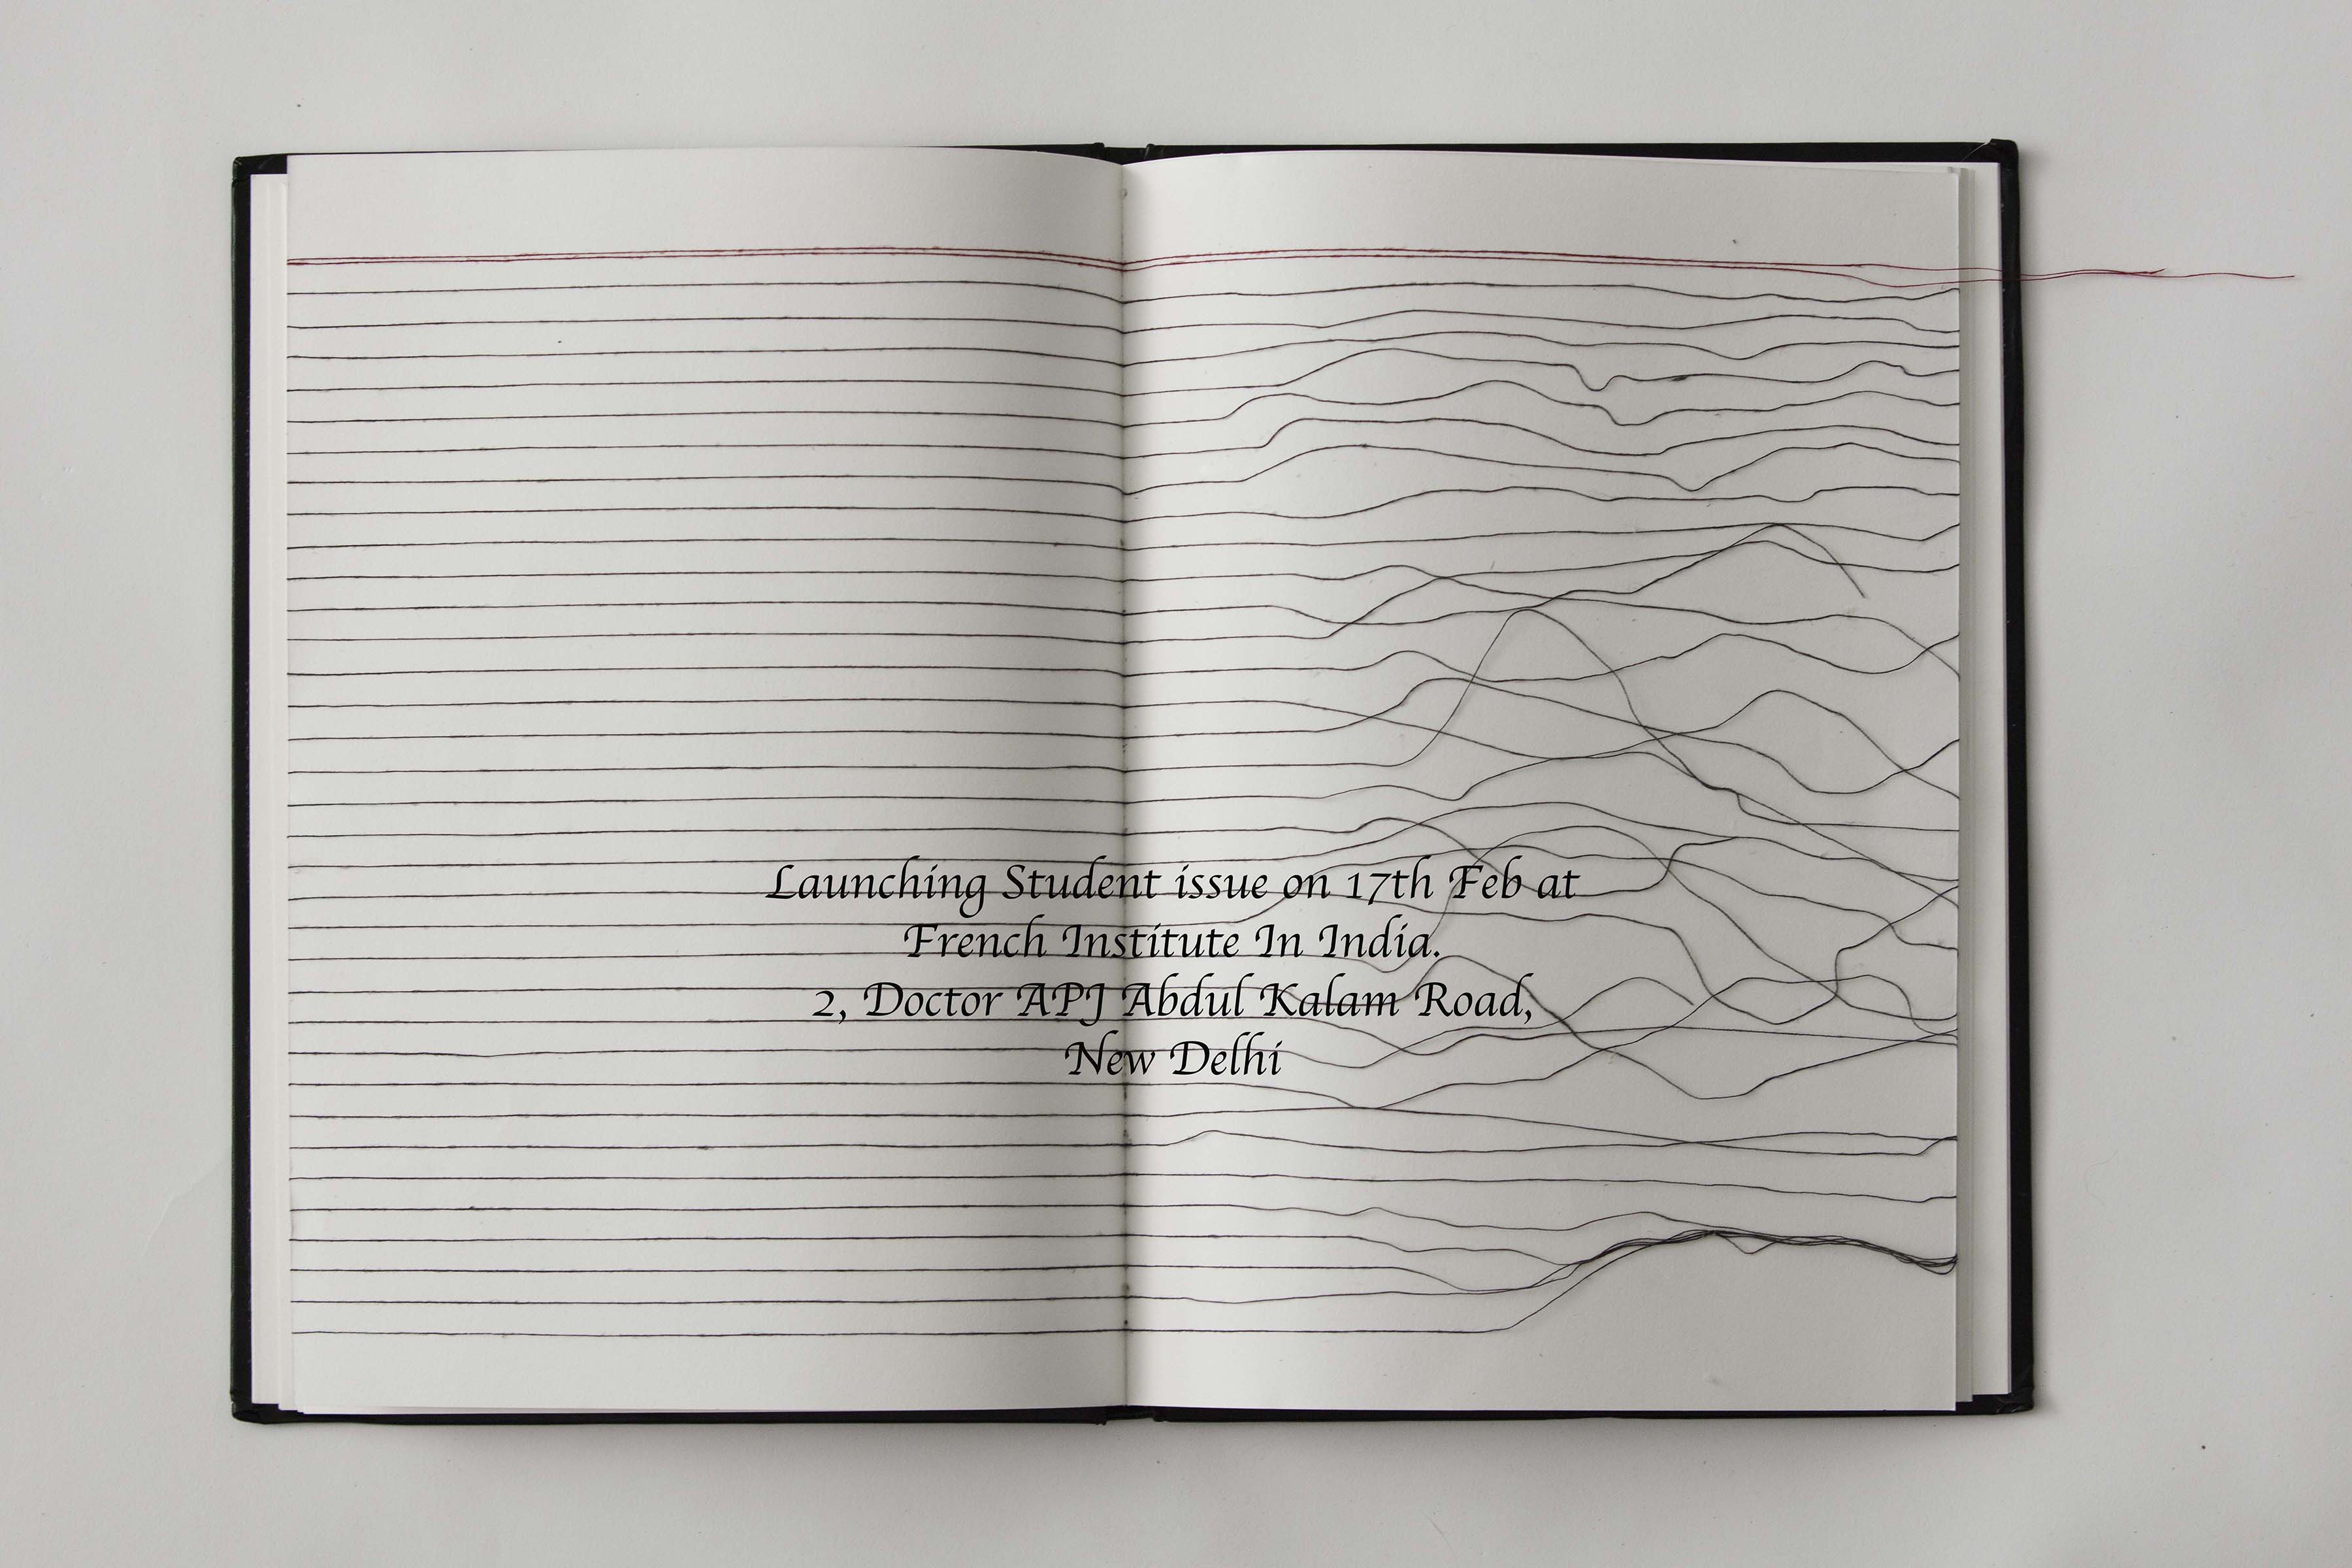 Launching Student issue on 17th Feb at
French Institute In India.
2, Doctor APJ Abdul Kalam Road,
New Delhi